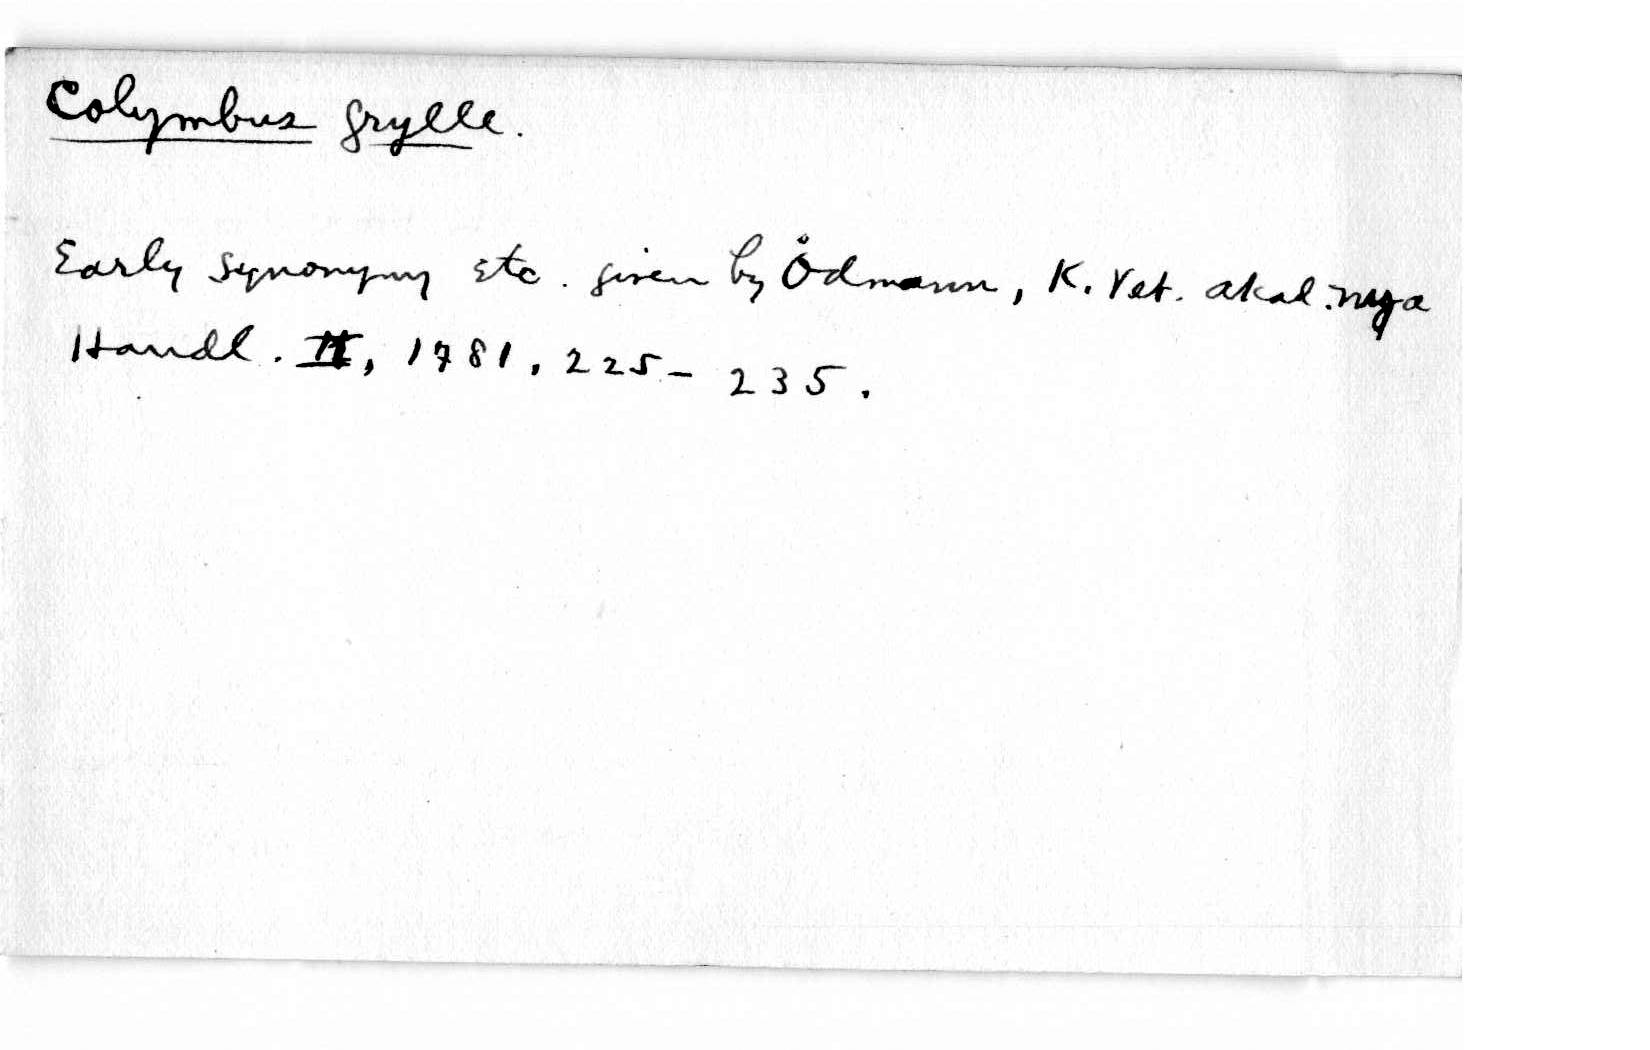 Colymbus grylle.
Early synonymy etc. given by Ödmann, K. Vet. akad. nya
Handl. II, 1781, 225-235.